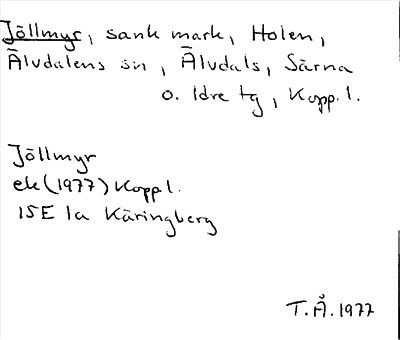 Jöllmyr, sank mark, Holen,
Älvdalens sn, Älvdals, Särna
o. Idre tg, Kopp. l.
Jöllmyr
ek (1977) Koppl.
15E 1a Käringberg
T.Å. 1977